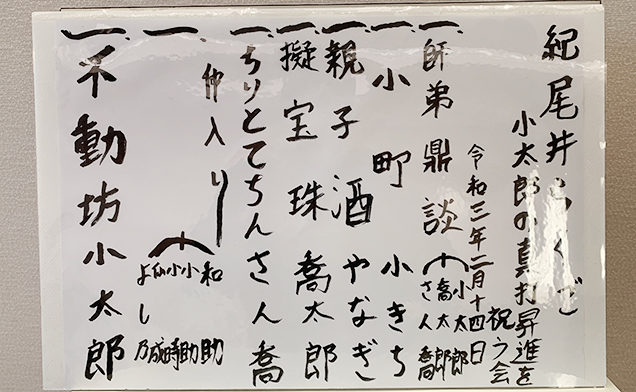 紀尾井らくご
小太郎の真打昇進を
祝う会
令和三年二月十四日
一、師弟鼎談 小太郎
喬太郎
さん喬
一、小町 小きち
一、親子酒 やなぎ
一、擬宝珠 喬太郎
一、ちりとてちん さん喬
仲入り
一、
和助
小助
小時
仙成
よし乃
一、不動坊 小太郎